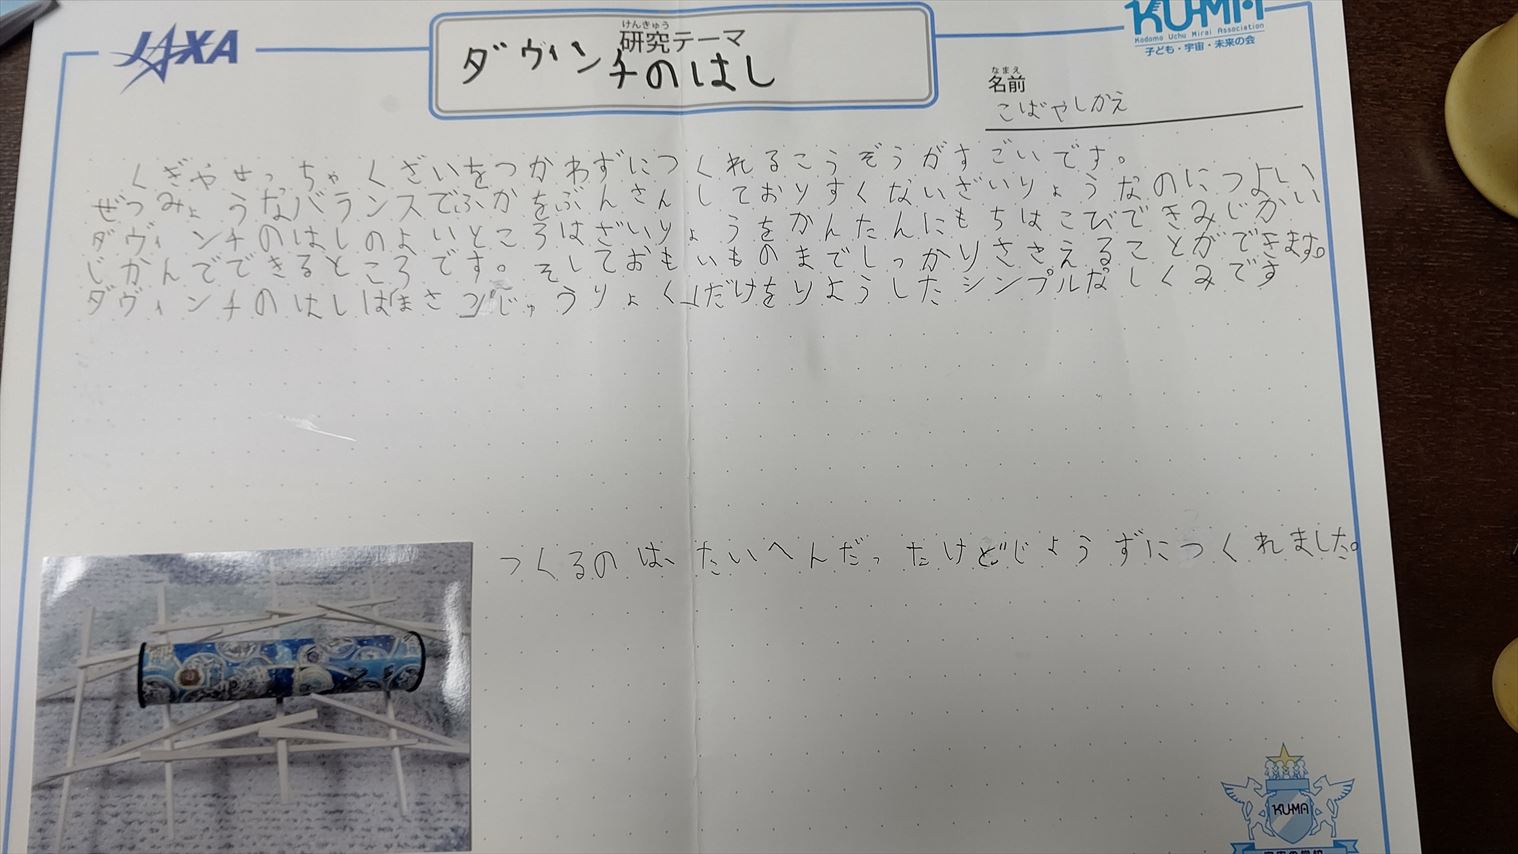 JAXA
けんきゅう
研究テーマ
ダヴィンチのはし
KU-MA
Kodomo Uchu Mirai Association
子ども・宇宙・未来の会
なまえ
名前
こばやしかえ
くぎやせっちゃくざいをつかわずにつくれるこうぞうがすごいです。
ぜつみょうなバランスでふかをぶんさんしておりすくないざいりょうなのにつよい、
ダヴィンチのはしのよいところはざいりょうをかんたんにもちはこびできみじかい
じかんでできるところです。そしておもいものまでしっかりささえることができます。
ダヴィンチのはしは「まさつ」「じゅうりょく」だけをりようしたシンプルなしくみです
つくるのは、たいへんだったけどじょうずにつくれました。
KU-MA